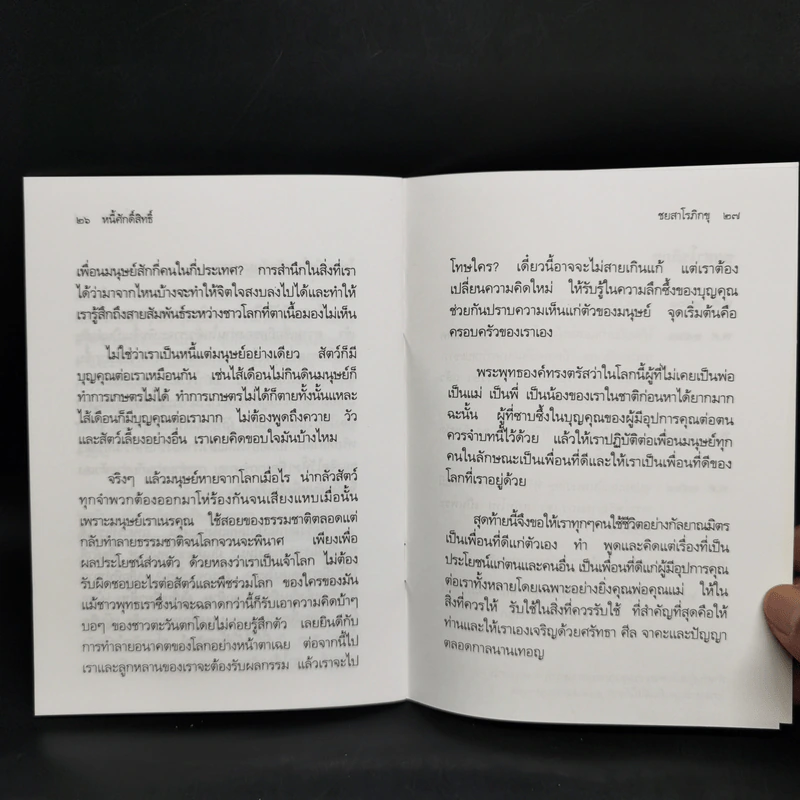 ๒๖ หนี้ศักดิ์สิทธิ์
เพื่อนมนุษย์สักกี่คนในกี่ประเทศ? การสำนึกในสิ่งที่เรา
ได้ว่ามาจากไหนบ้างจะทำให้จิตใจสงบลงไปได้และทำให้
เรารู้สึกถึงสายสัมพันธ์ระหว่างชาวโลกที่ตาเนื้อมองไม่เห็น
ไม่ใช่ว่าเราเป็นหนี้แต่มนุษย์อย่างเดียว สัตว์ก็มี
บุญคุณต่อเราเหมือนกัน เช่นไส้เดือนไม่กินดินมนุษย์ก็
ทำการเกษตรไม่ได้ ทำการเกษตรไม่ได้ก็ตายทั้งนั้นแหละ
ไส้เดือนก็มีบุญคุณต่อเรามาก ไม่ต้องพูดถึงควาย วัว
และสัตว์เลี้ยงอย่างอื่น เราเคยคิดขอบใจมันบ้างไหม
จริงๆ แล้วมนุษย์หายจากโลกเมื่อไร น่ากลัวสัตว์
ทุกจำพวกต้องออกมาโห่ร้องกันจนเสียงแหบเมื่อนั้น
เพราะมนุษย์เราเนรคุณ ใช้สอยของธรรมชาติตลอดแต่
กลับทำลายธรรมชาติจนโลกจวนจะพินาศ เพียงเพื่อ
ผลประโยชน์ส่วนตัว ด้วยหลงว่าเราเป็นเจ้าโลก ไม่ต้อง
รับผิดชอบอะไรต่อสัตว์และพืชร่วมโลก ของใครของมัน
แม้ชาวพุทธเราซึ่งน่าจะฉลาดกว่านี้ก็รับเอาความคิดบ้าๆ
บอๆ ของชาวตะวันตกโดยไม่ค่อยรู้สึกตัว เลยยินดีกับ
การทำลายอนาคตของโลกอย่างหน้าตาเฉย ต่อจากนี้ไป
เราและลูกหลานของเราจะต้องรับผลกรรม แล้วเราจะไป
ชยสาโรภิกขุ ๒๗
โทษใคร? เดี๋ยวนี้อาจจะไม่สายเกินแก้ แต่เราต้อง
เปลี่ยนความคิดใหม่ ให้รับรู้ในความลึกซึ้งของบุญคุณ
ช่วยกันปราบความเห็นแก่ตัวของมนุษย์ จุดเริ่มต้นคือ
ครอบครัวของเราเอง
พระพุทธองค์ทรงตรัสว่าในโลกนี้ผู้ที่ไม่เคยเป็นพ่อ
เป็นแม่ เป็นพี่ เป็นน้องของเราในชาติก่อนหาได้ยากมาก
ฉะนั้น ผู้ที่ซาบซึ้งในบุญคุณของผู้มีอุปการคุณต่อตน
ควรจำบทนี้ไว้ด้วย แล้วให้เราปฏิบัติต่อเพื่อนมนุษย์ทุก
คนในลักษณะเป็นเพื่อนที่ดีและให้เราเป็นเพื่อนที่ดีของ
โลกที่เราอยู่ด้วย
สุดท้ายนี้จึงขอให้เราทุกๆคนใช้ชีวิตอย่างกัลยาณมิตร
เป็นเพื่อนที่ดีแก่ตัวเอง ทำ พูดและคิดแต่เรื่องที่เป็น
ประโยชน์แก่ตนและคนอื่น เป็นเพื่อนที่ดีแก่ผู้มีอุปการคุณ
ต่อเราทั้งหลายโดยเฉพาะอย่างยิ่งคุณพ่อคุณแม่ ให้ใน
สิ่งที่ควรให้ รับใช้ในสิ่งที่ควรรับใช้ ที่สำคัญที่สุดคือให้
ท่านและให้เราเองเจริญด้วยศรัทธา ศีล จาคะและปัญญา
ตลอดกาลนานเทอญ